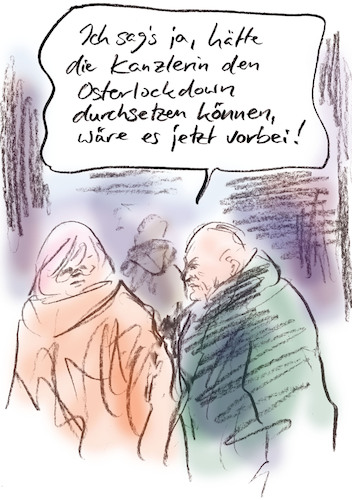 Ich sag's ja, hätte
die Kanzlerin den
Osterlockdown
durchsetzen können,
wäre es jetzt vorbei!